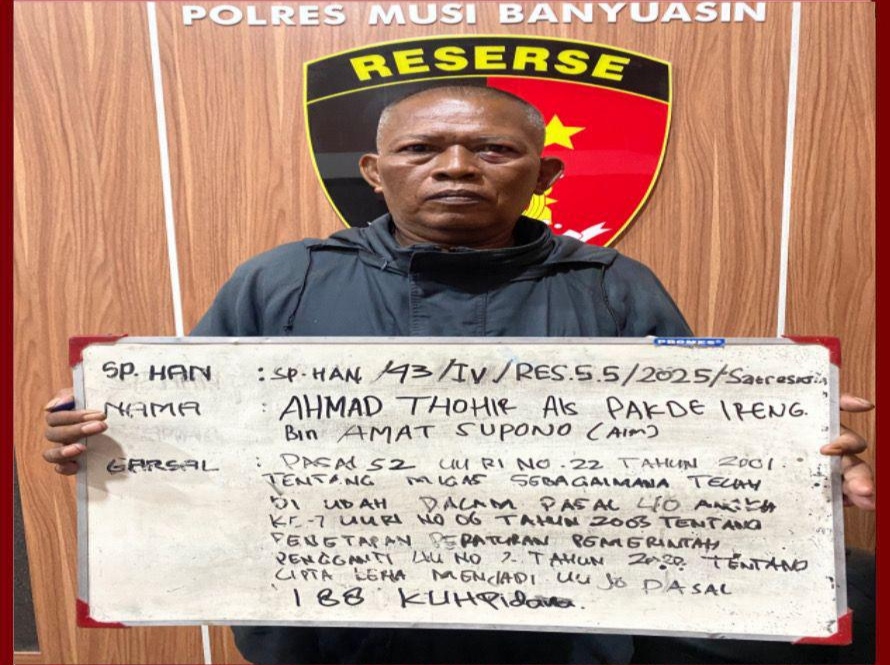 POLRES MUSI BANYUASIN
RESERSE
PROMES
SP. HAN : SP. HAN /93/IV/RES.5.5/2025/Satreskrim
NAMA : AHMAD THOHIR Als PAKDE IRENG.
Bin AMAT SUPONO (Alm)
: PASAL 52 UU RI NO. 22 TAHUN 2001
TENTANG MIGAS SEBAGAIMANA TELAH
DI UBAH DALAM PASAL 40 ANGKA
KE-7 UURI NO 06 TAHUN 2003 TENTANG
PENETAPAN PERATURAN PEMERINTAH
PENGGANTI UU NO 2 TAHUN 2020 TENTANG
CIPTA MENJADI UU JO PASAL
188 KUHPidana.